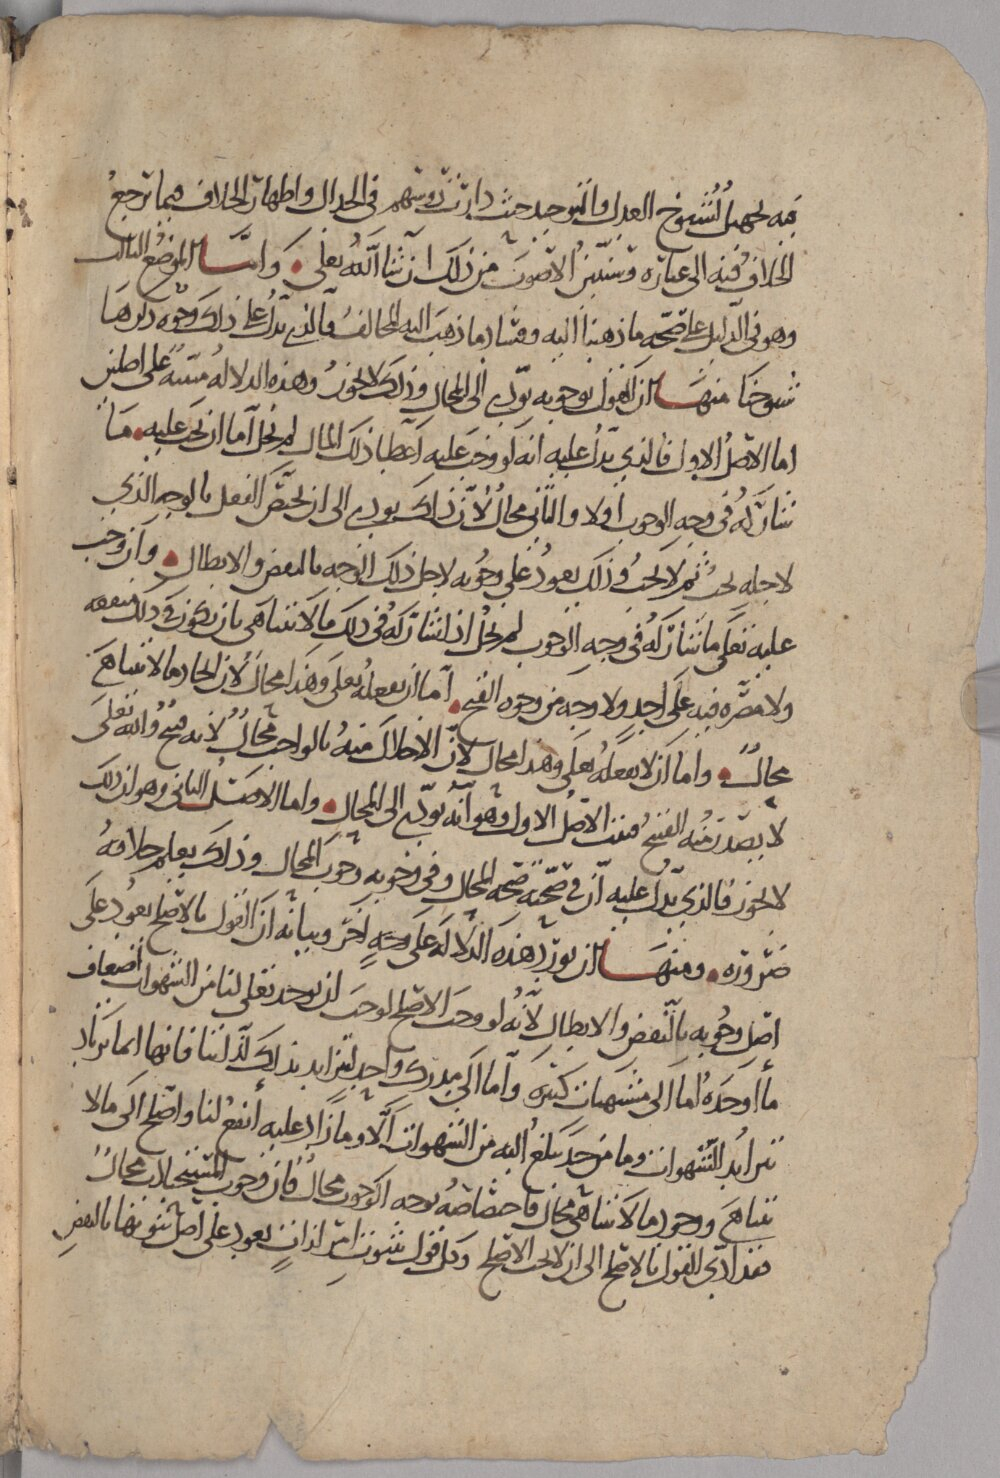 فيه بجهل لشيوخ العدل والتوحيد حيث دارت رؤسهم في الجدال واظهار الخلاف فيما يرجع
الخلاف فيه الى عباره وسنبين الاصوب من ذلك ان شا الله تعلى واما الموضع الثالث
وهو في الدليل على صحه ما ذهبنا اليه وفساد ما ذهب اليه المخالف فالذي يدل على ذلك وجوه ذكرها
شيوخنا منها ان القول بوجوبه يؤدي الى المحال وذلك لا يجوز وهذه الدلاله مبنيه على اصلين
اما الاصل الاول فالذي يدل عليه انه لو وجب عليه اعطا ذلك المال لم يخل اما ان يجب عليه ما
شاركه في وجه الوجوب او لا والثاني محال لأن ذلك يودي الى ان يختص الفعل بالوجه الذي
لاجله يجب ثم لا يجب وذلك يعود على وجوبه لاجل ذلك الوجه بالنقض والابطال وان وجب
عليه تعلى ما شاركه في وجه الوجوب لم يخل اذا شاركه في ذلك ما لا يتناهى بان يكون في ذلك منفعه
ولا مضره فيه على احد ولا وجه من وجوه القبح اما ان يفعله تعلى وهذا محال لان ايجاد ما لا يتناهى
محال واما ان لا يفعله تعلى وهذا محال لان الاخلال منه بالواجب محال لانه قبيح والله تعلى
لا يصدر منه القبيح فثبت الاصل الاول وهو انه يؤدي الى المحال واما الاصل الثاني وهو ان ذلك
لا يجوز فالذي يدل عليه ان في صحته صحه المحال وفي وجوبه وجوب المحال وذلك يعلم خلافه
ضروره ومنها ان نورد هذه الدلاله على وجه اخر وبيانه ان القول بالاصلح يعود على
اصل وجوبه بالنقض والابطال لأنه لو وجب الاصلح لوجب ان يوجد تعلى لنا من الشهوات اضعاف
ما أوجده اما الى مشتهيات كثيره واما الى مدرك واحد ليتزايد بذلك لذاتنا فانها انما تزداد
بتزايد الشهوات وما من حد تبلغ اليه من الشهوات الا وما زاد عليه أنفع لنا واصلح الى ما لا
يتناهى ووجود ما لا يتناهى محال فاختصاصه بوجه الوجوب محال فان وجوب المستحيلات محال
فقد ادى القول بالاصلح الى ان لا يجب الاصلح وكل قول بثبوت امر اذا كان يعود على اصل ثبوتها بالنقض